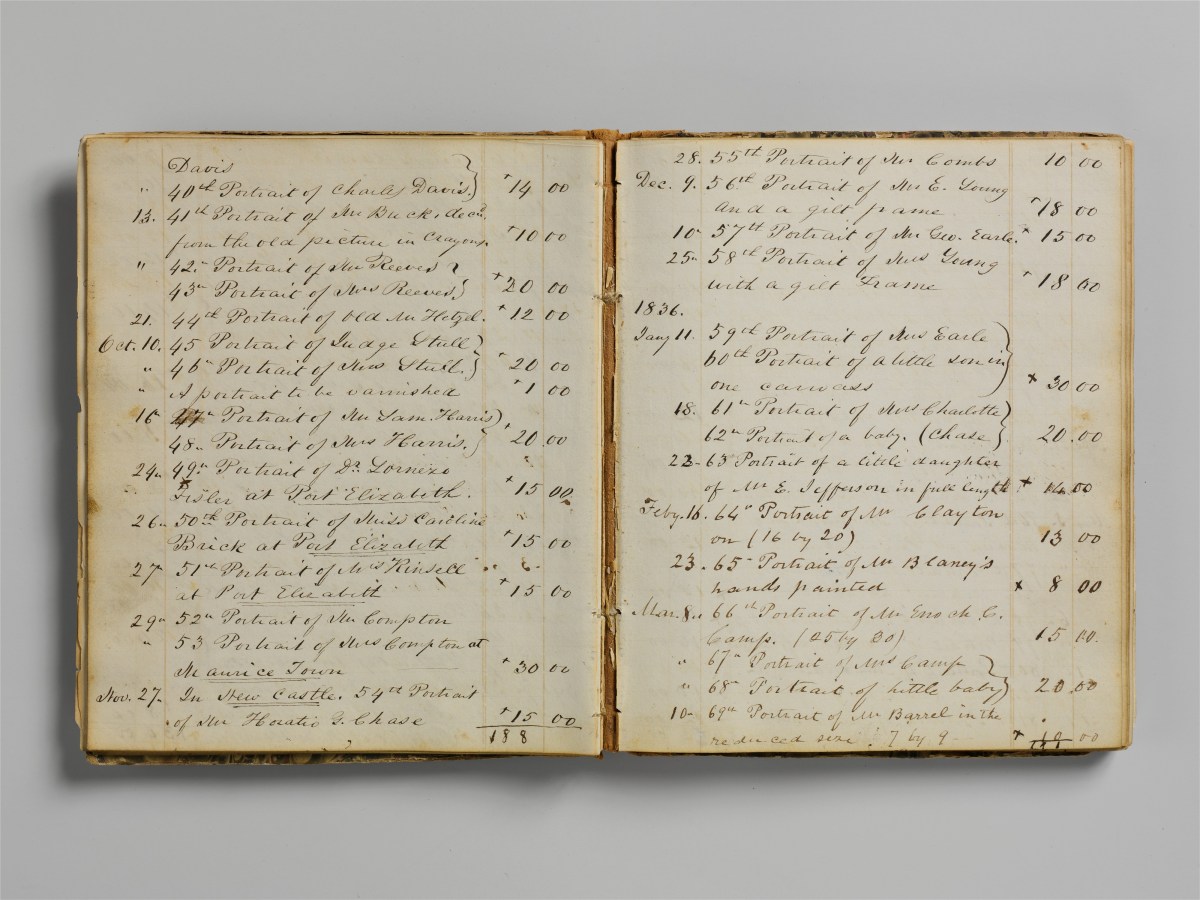 Davis
" 40th Portrait of Charles Davis.} 14 00
13. 41th Portrait of Mr Buck, decd.
from the old picture in Crayons. 10 00
" 42" Portrait of Mr Reeves
43" Portrait of Mrs Reeves.} 20 00
21. 44th Portrait of old Mr Hetzel. 12 00
Oct. 10. 45 Portrait of Judge Stull
" 46" Portrait of Mrs Stull.} 20 00
" A portrait to be varnished 1 00
16" 47" Portrait of Mr Sam. Harris
48" Portrait of Mrs Harris.} 20.00
24" 49" Portrait of Dr. Lornezo
Fisler at Port Elizabeth. 15 00
26" 50th Portrait of Miss Caroline
Brick at Port Elizabeth 15 00
27 51th Portrait of Mrs Kinsell
at Port Elizabeth 15 00
29" 52" Portrait of Mr Compton
" 53 Portrait of Mrs Compton at
Maurice Town 30 00
Nov. 27. In New Castle. 54th Portrait
of Mr Horatio G. Chase 15 00
188
28. 55th Portrait of Mr Combs 10 00
Dec. 9. 56th Portrait of Mr E. Young
and a gilt frame 18 00
10" 57th Portrait of Mr Geo. Earle. 15 00
25" 58th Portrait of Mrs Young
with a gilt Frame 18 00
1836.
Jany 11. 59th Portrait of Mrs Earle
60th Portrait of a little son in
one canvass } 30 00
18. 61" Portrait of Mrs Charlotte
62" Portrait of a baby. (Chase } 20.00
23- 63 Portrait of a little daughter
of Mr E. Jefferson in full length 14.00
Feby. 16. 64" Portrait of Mr Clayton
on (16 by 20) 13 00
23. 65- Portrait of Mr Blaney's
hands painted 8 00
Mar. 8" 66th Portrait of Mr Enoch C.
Camp. (25 by 30) 15 00.
" 67" Portrait of Mrs Camp
" 68" Portrait of little baby } 20.00
10- 69th Portrait of Mr Barrel in the
reduced size 7 by 9 00